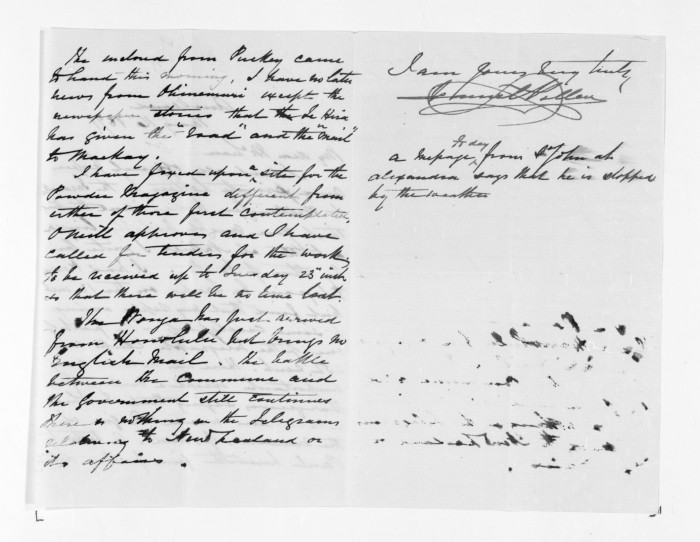 The enclosed from Puckey came
to hand this morning, I have no later
news from Ohinemuri except the
newspaper stories that the Te Hira
has given the "road" and the "mail"
to Mackay.
I have fixed upon a site for the
Powder Magazine different from
either of those first contemplated,
O'Neill approves and I have
called for tenders for the work,
to be received up to Tuesday 23rd inst
so that there will be no time lost.
The Wonga has just arrived
from Honolulu but brings no
English Mail. The battle
between the Commune and
the Government still continues
there is nothing in the Telegrams
relating to New Zealand or
its affairs.
I am yours very truly
Daniel Pollen
to day
a message from St John at
alexandra says that he is stopped
by the weather